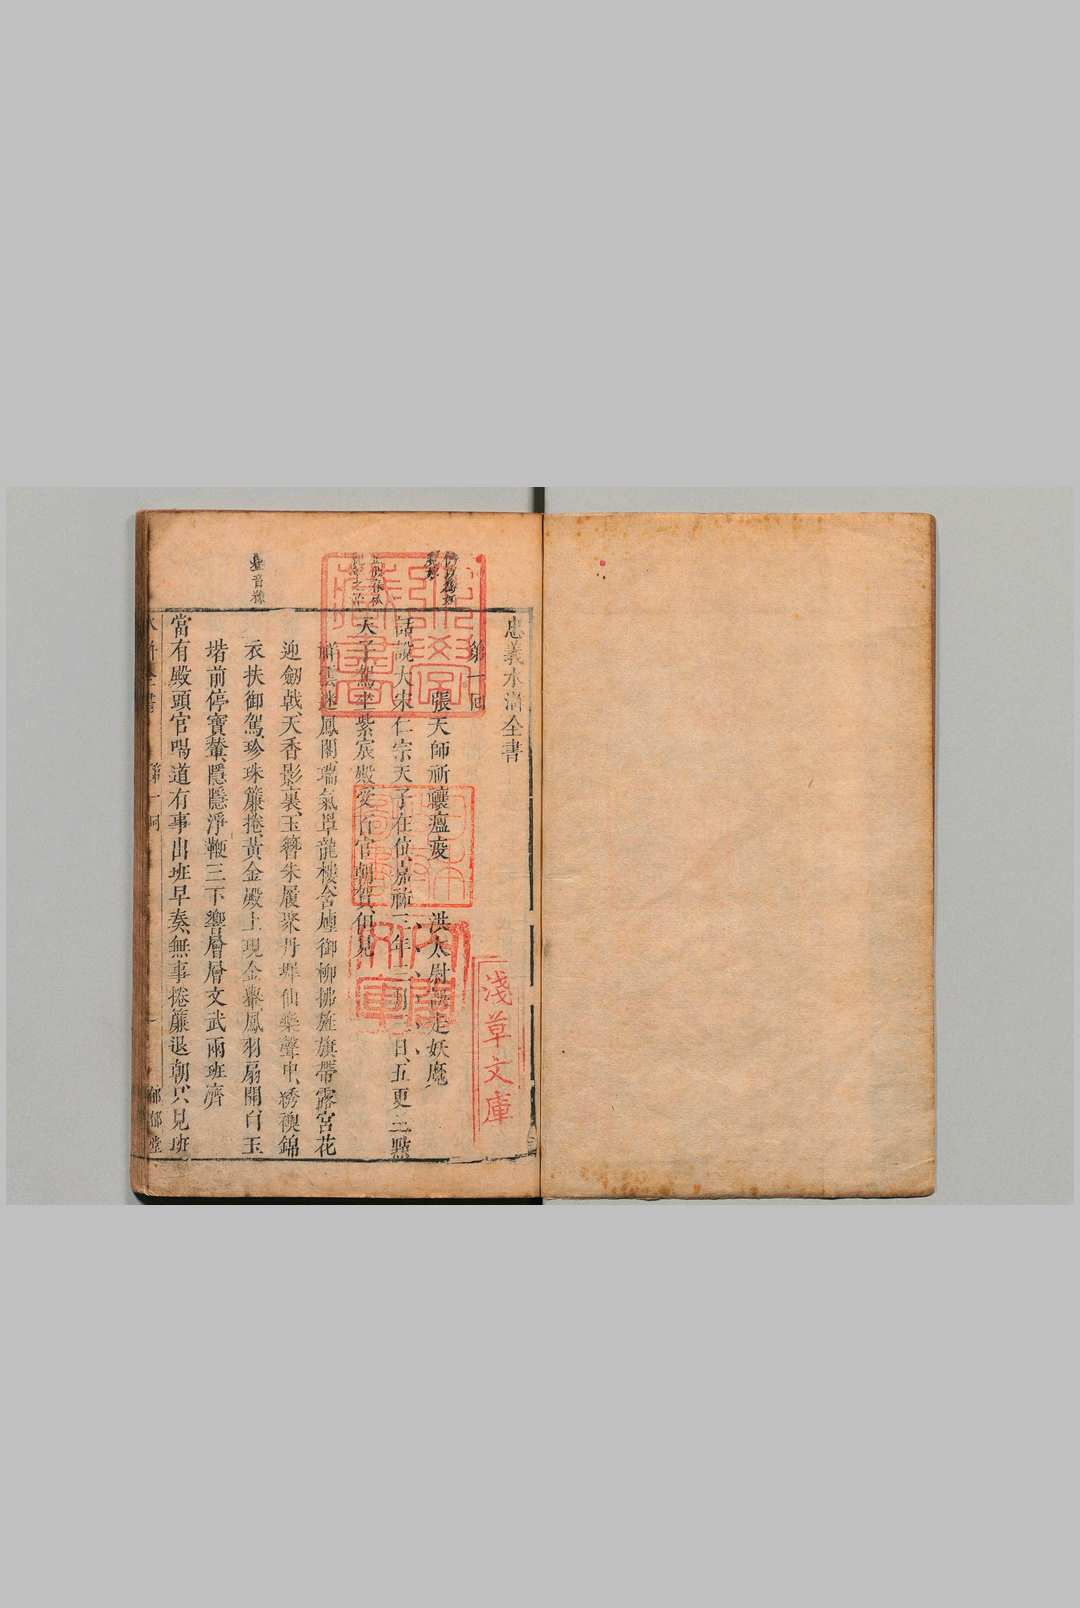 忠義水滸全書
第一回
張天師祈禳瘟疫　洪太尉誤走妖魔
話說大宋仁宗天子在位、嘉祐三年三月三日、五更三點、
天子駕坐紫宸殿、受百官朝賀、但見
祥雲迷鳳閣、瑞氣罩龍樓、含煙御柳拂旌旗、帶露宮花
迎劒戟、天香影裏、玉簪朱履聚丹墀、仙樂聲中、綉襖錦
衣扶御駕、珍珠簾捲、黃金殿上現金轝、鳳羽扇開、白玉
堦前停寶輦、隱隱淨鞭三下響、層層文武兩班齊
當有殿頭官喝道、有事出班早奏、無事捲簾退朝、只見班
水滸全書　第一回　一　郁郁堂
淺草文庫